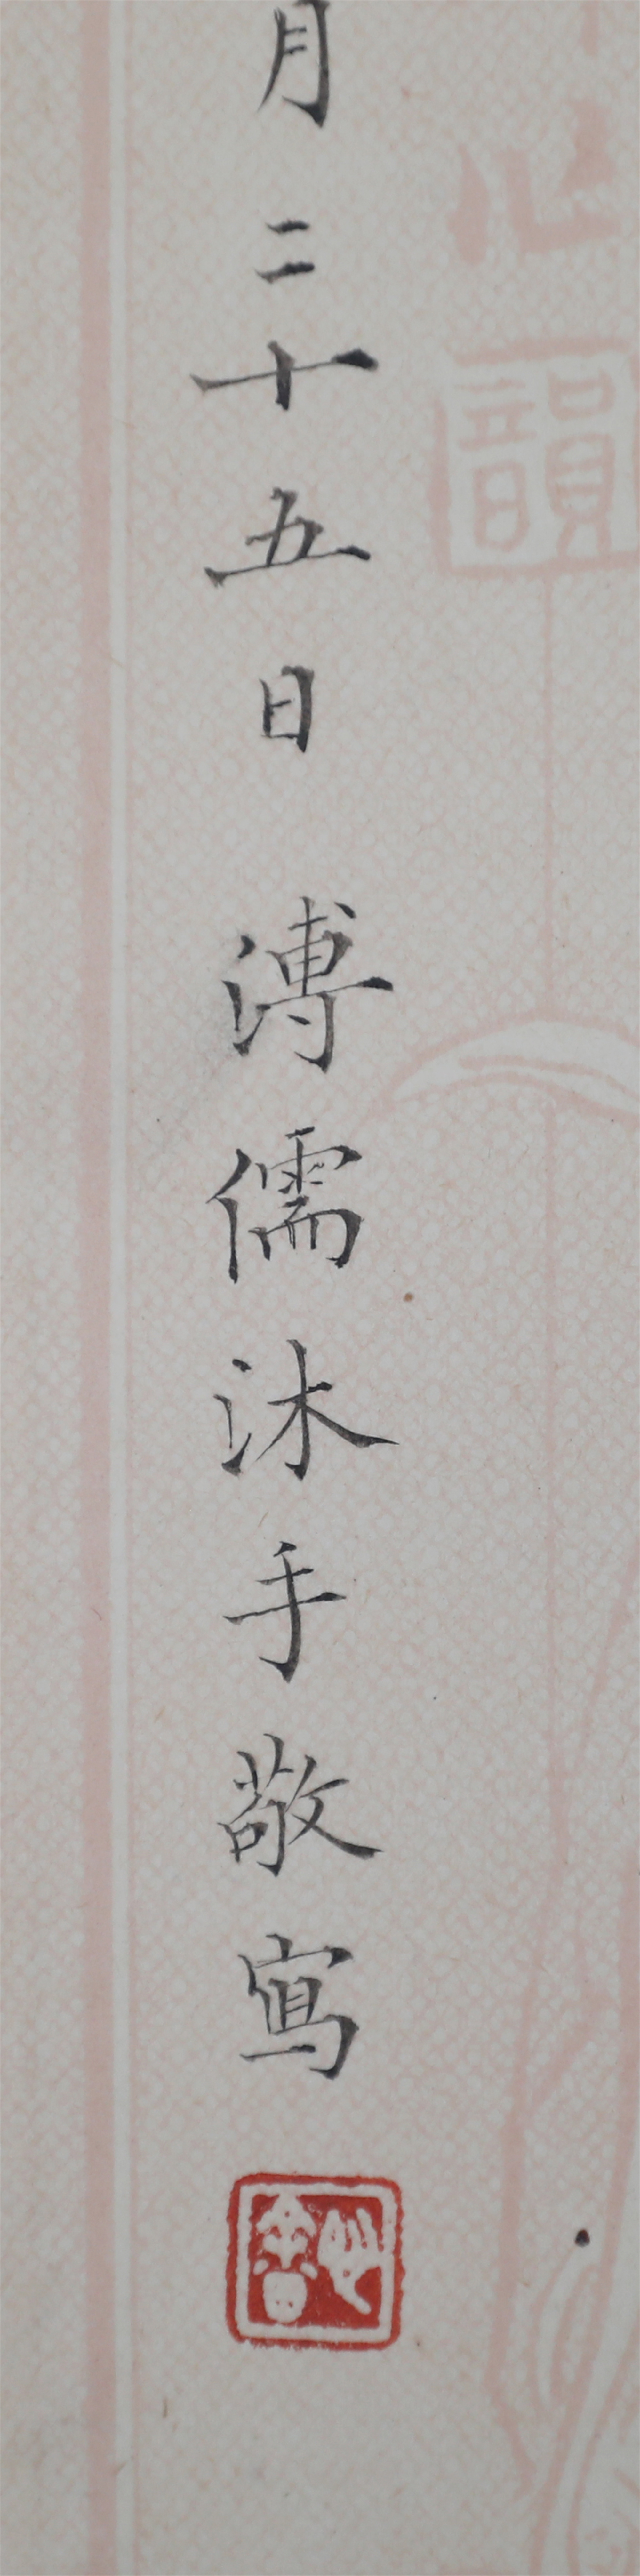 韻
月二十五日 溥儒沐手敬寫